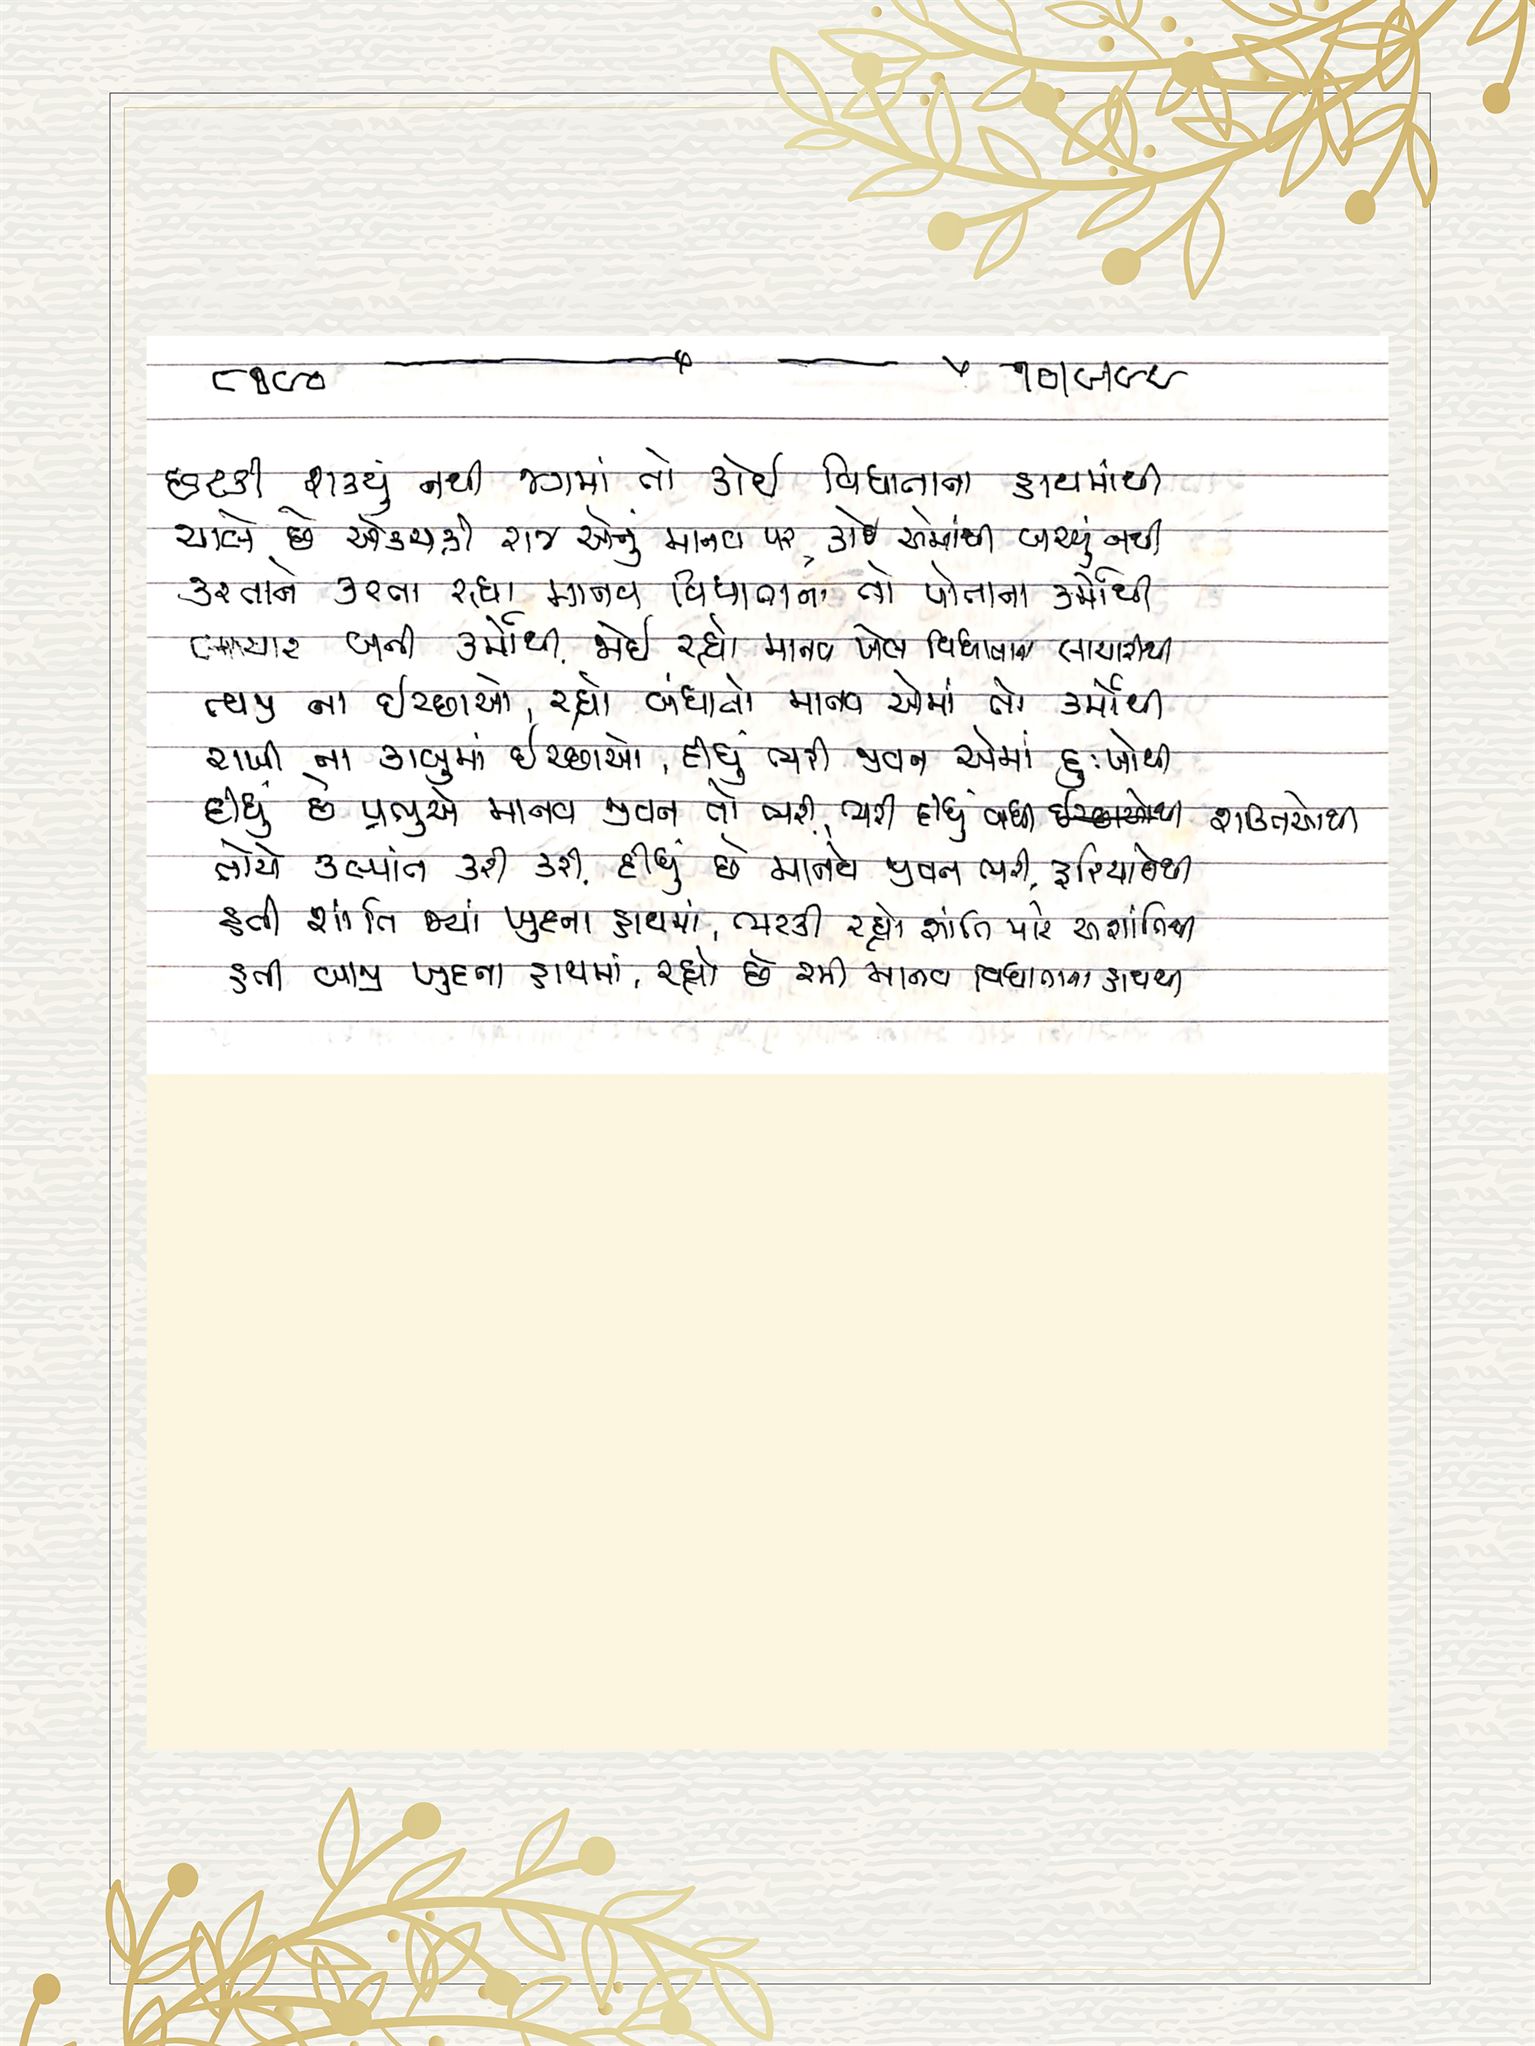 ૮૧૯૦ ૧૦/૯/૯૯
છટકી શક્યું નથી જગમાં તો કોઈ વિધાતાના હાથમાંથી
ચાલે છે એકચક્રી રાજ એનું માનવ પર, કોઈ એમાંથી બચ્યું નથી
કરતાને કરતા રહ્યા માનવ વિધાતાના તો પોતાના કર્મોથી
લાચાર બની કર્મોથી, જોઈ રહ્યો માનવ ખેલ વિધાતાના લાચારીથી
ત્યજી ના ઈચ્છાઓ, રહ્યો બંધાતો માનવ એમાં તો કર્મોથી
રાખી ના કાબુમાં ઈચ્છાઓ, દીધું ભરી જીવન એમાં દુઃખોથી
દીધું છે પ્રભુએ માનવ જીવન તો ભરી, ભરી દીધું બધી ઈચ્છાઓથી શક્તિઓથી
તોયે કલ્પાંત કરી કરી, દીધું છે માનવે જીવન ભરી, ફરિયાદોથી
હતી શાંતિ જ્યાં ખુદના હાથમાં, ભટકી રહ્યો શાંતિ માટે અશાંતિથી
હતી બાજી ખુદના હાથમાં, રહ્યો છે રમી માનવ વિધાતાના હાથથી